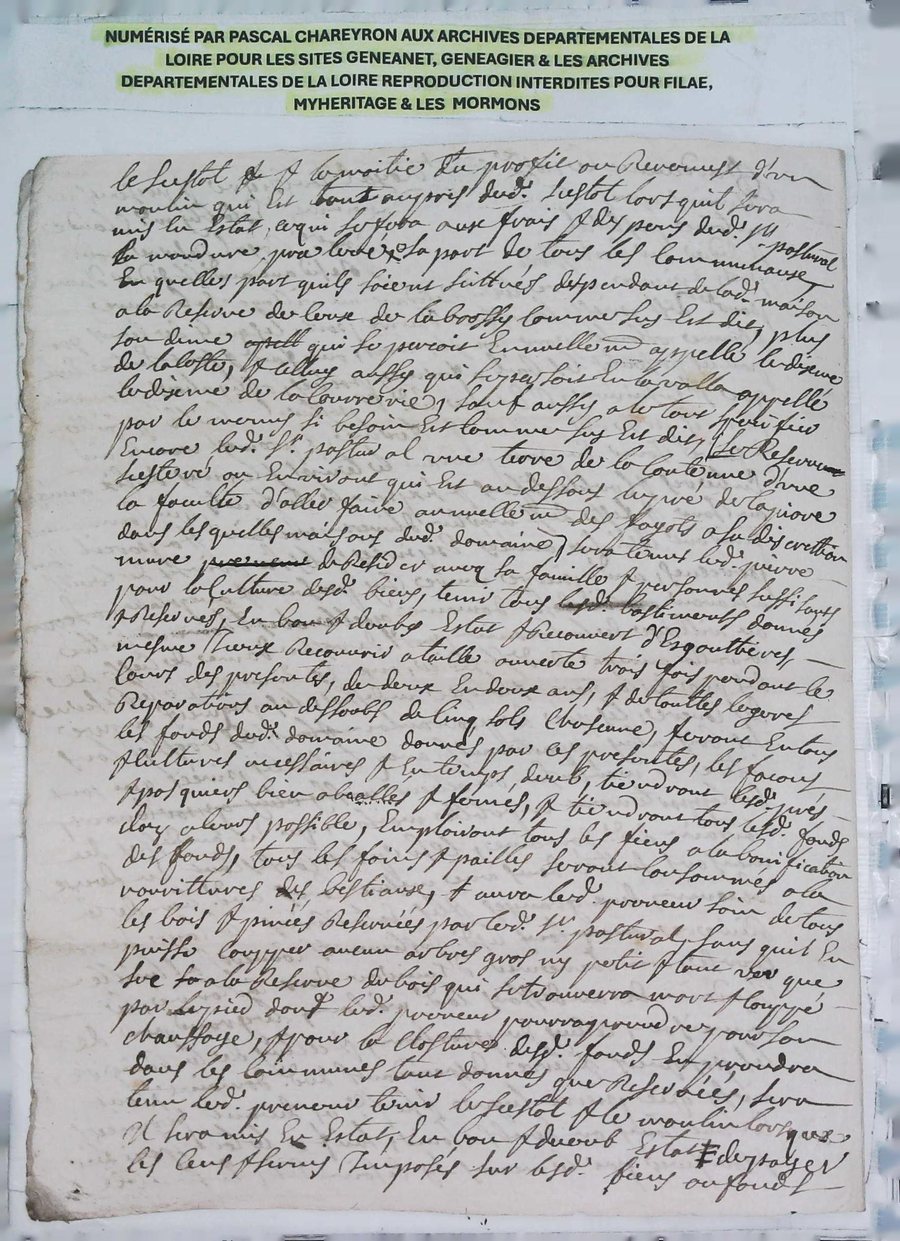 NUMÉRISÉ PAR PASCAL CHAREYRON AUX ARCHIVES DEPARTEMENTALES DE LA
LOIRE POUR LES SITES GENEANET, GENEAGIER & LES ARCHIVES
DEPARTEMENTALES DE LA LOIRE REPRODUCTION INTERDITES POUR FILAE,
MYHERITAGE & LES MORMONS
le la moitie du profit ou Revenust d'un
moulin qui Est tout aupres dud. lors quil sera
mis En Estat, cequi se fera aux frais & des pens dud. sr pastural
la part de tous les Communeaux
En quelles part quils soient sittués dependant de lad. maison
a la Reserve de ceux de la comme sus Est dit, plus
son dime qui se percoit Ennuellemt appellé le dixeme
de la & celluy aussy qui En la valla appellé
le dixeme de la sauf aussy a le tout speciffier
par le menus si besoin Est comme sus Est dit, se Reserv
Encore led. sr. pastural une terre de la Contenüe d'une
ou Environt qui Est au dessous
la faculté d'aller faire annuellemt des fagots a sa discrettion
dans les quelles maisons dud. domaine, sera tenus led. pierre
mure de Resider avecq sa famille & personnes suffisants
pour la Culture desd. biens, tenir tous lesd. bastiments donnés
& Reservés, En bon & deubs Estat & Recouvert d'Esgouttieres,
mesme Recouvrir a taille ouverte trois fois pendant le
Cours des presentes, de deux En deux ans, & de touttes legeres
Reparations au dessoubs de Cinq sols Chacune, feront En tous
les fonds dud. domaine donnés par ces presentes, les façons
& Cultures necessaires & En temps deub, tiendront lesd. prés
& pasquiers bien & fermés, & tiendront tous lesd. fonds
clos a leurs possible, Emploiront tous les fiens a la bonification
des fonds, tous les foins & pailles seront Consommés a la
nourritures des bestiaux, & aura led. preneur soin de tous
les bois & Reservées par led. sr. pastural, sans quil En
puisse Coupper aucun arbres gros ny petit & tant que
sec a la Reserve du bois qui se trouverra mort & Couppé
par pied dont led. preneur pourra prendre pour son
chauffage, & pour la Closture desd. fonds En prendra
dans les Communes tant donnés que Reservéés, sera
tenu led. preneur tenir le & le moulin lors que
Il sera mis En Estat, En bon & deueub Estat & de payer
les Cens & servis Imposés sur lesd. biens ou fonds